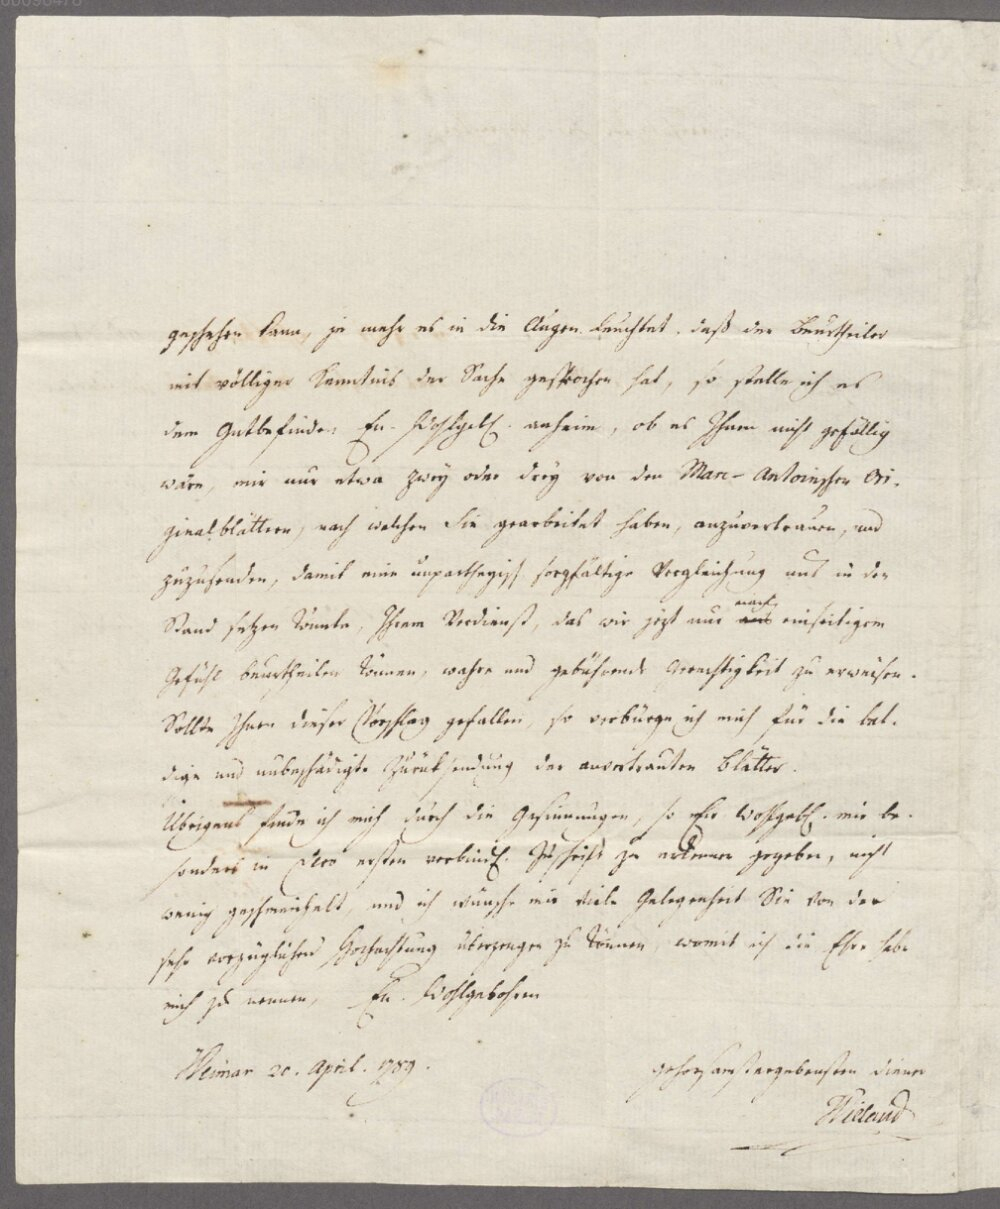 geschehen kann, je mehr es in die Augen leuchtet, daß der Beurtheiler
mit völliger Kenntnis der Sache gesprochen hat, so stelle ich es
dem Gutbefinden Ew. Wohlgeb. anheim, ob es Ihnen nicht gefällig
wäre, mir nur etwa zwey oder drey von den Marc-Antoinschen Ori-
ginalblättern, nach welchen Sie gearbeitet haben, anzuvertrauen, und
zuzusenden, damit eine unpartheyisch sorgfältige Vergleichung uns in den
Stand setzen könnte, Ihrem Verdienst, das wir jezt nur nach einseitigem
Gefühl beurtheilen können, wahre und gebührende Gerechtigkeit zu erweisen.
Sollte Ihnen dieser Vorschlag gefallen, so verbürge ich mich für die bal-
dige und unbeschädigte Zurüksendung der anvertrauten Blätter.
Übrigens finde ich mich durch die Gesinnungen, so Ew Wohlgeb. mir be-
sonders in Dero ersten verbindl. Zuschrift zu erkennen gegeben, nicht
wenig geschmeichelt, und ich wünsche mir viele Gelegenheit Sie von der
sehr vorzüglichen Hochachtung überzeugen zu können, womit ich die Ehre habe
mich zu nennen, Ew. Wohlgebohren
Weimar 20. April. 1789.
gehorsamst ergebensten Diener
Wieland